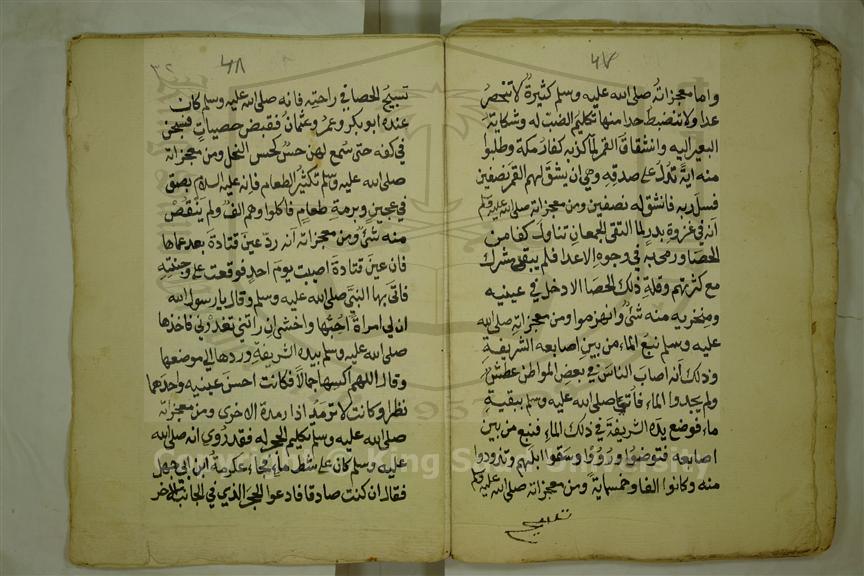 ٤٧
واما معجزاته صلى الله عليه وسلم كثيرة لا تنحصر
عدا ولا تنضبط حدا منها تكليم الضب له وشكاية
البعير اليه وانشقاق القمر لما كذبه كفار مكة وطلبوا
منه اية تدل على صدقه وهي ان يشق لهم القمر نصفين
فسل ربه فانشق له نصفين ومن معجزاته صلى الله عليه وسلم
انه في غزوة بدر لما التقى الجمعان تناول كفا من
الحصا ورمى به في وجوه الاعدا فلم يبقى مشرك
مع كثرتهم وقلة ذلك الحصا الا دخل في عينيه
ومنخريه منه شئ وانهزموا ومن معجزاته صلى الله
عليه وسلم نبع الماء من بين اصابعه الشريفة
وذلك انه اصاب الناس في بعض المواطن عطش
ولم يجدوا الماء فأتى صلى الله عليه وسلم ببقية
ماء فوضع يده الشريفة في ذلك الماء فنبع من بين
اصابعه فتوضوا ورووا وسقوا ابلهم وتزودوا
منه وكانوا الفا وخمسماية ومن معجزاته صلى الله عليه وسلم
تسبيح
٤٨
٣٢
تسبيح الحصا في راحته فانه صلى الله عليه وسلم كان
عنده ابو بكر وعمر وعثمان فقبض حصيات فسبحن
في كفه حتى سمع لهن حس كحس النحل ومن معجزاته
صلى الله عليه وسلم تكثير الطعام فانه عليه السلام بصق
في عجين وبرمة طعام فاكلوا وهم الف ولم ينقص
منه شئ ومن معجزاته انه رد عين قتادة بعد عماها
فان عين قتادة اصيبت يوم احد فوقعت على وجنته
فأتى بها النبي صلى الله عليه وسلم وقال يا رسول الله
ان لي امراة احبها واخشى ان راتني تقذرني فاخذها
صلى الله عليه وسلم بيده الشريفة وردها الى موضعها
وقال اللهم اكسها جمالا فكانت احسن عينيه واحدهما
نظرا وكانت لا ترمد اذا رمدة الاخرى ومن معجزاته
صلى الله عليه وسلم تكليم الحجر له فقد روي انه صلى الله
عليه وسلم كان على شط ماء فجاء عكرمة ابن ابي جهل
فقال ان كنت صادقا فادعوا الحجر الذي في الجانب الاخر
Copyright © King Saud University
1957